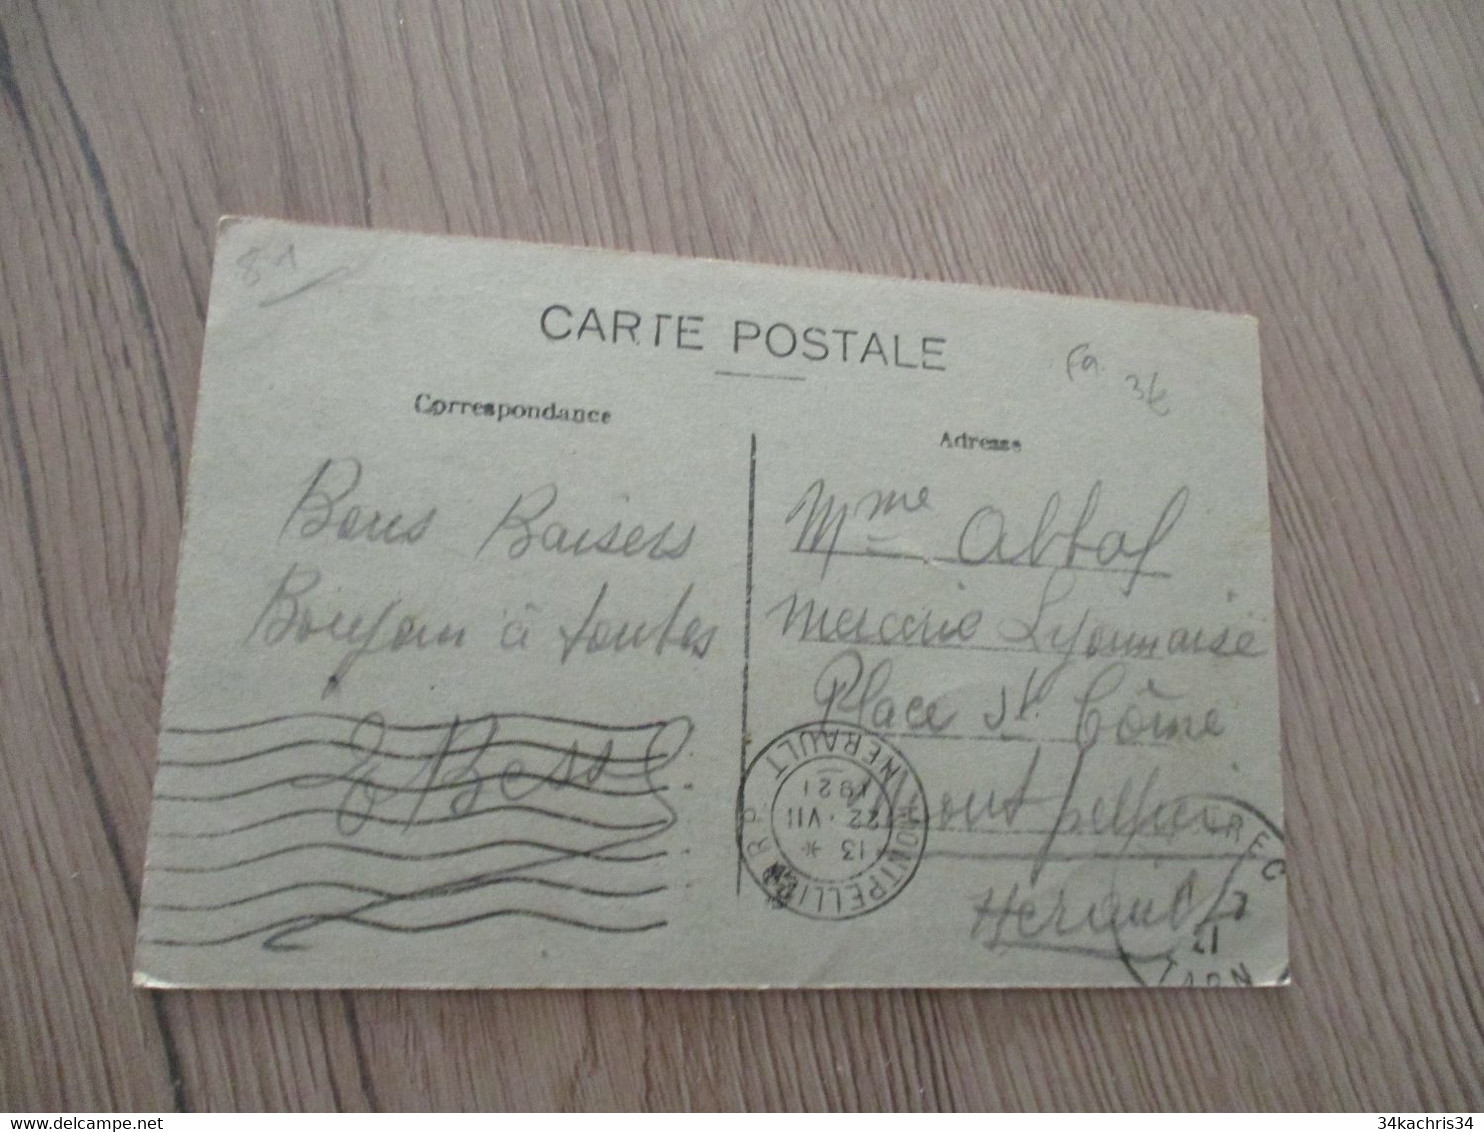 81
CARTE POSTALE
Correspondance
Adresse
Bons Baisers
Bonjour à toutes
Mme Abbal
Mercerie Lyonnaise
Place St Côme
Montpellier
Hérault
MONTPELLIER R.P.
HERAULT
13 * 22 · VII
1921
REC
TARN
34kachris34